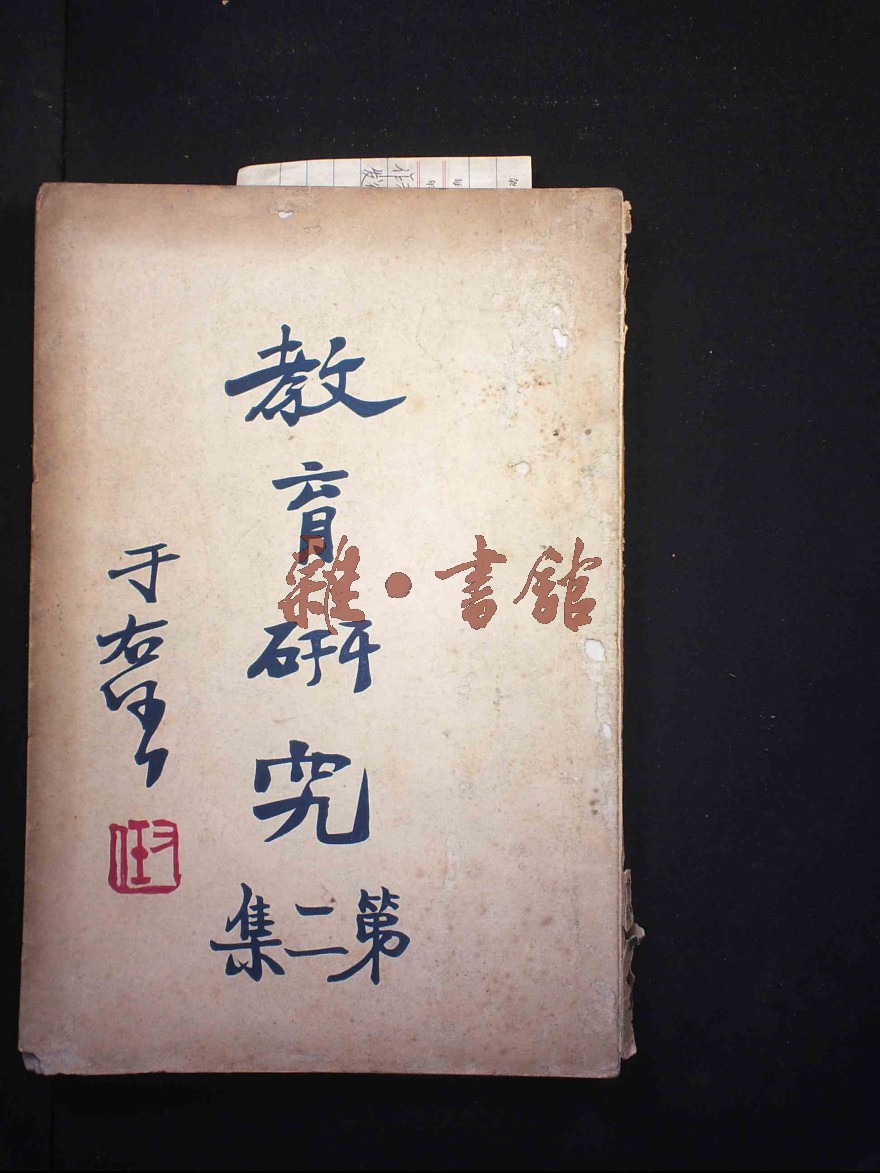 教育研究
第二集
于右任
雜·書館